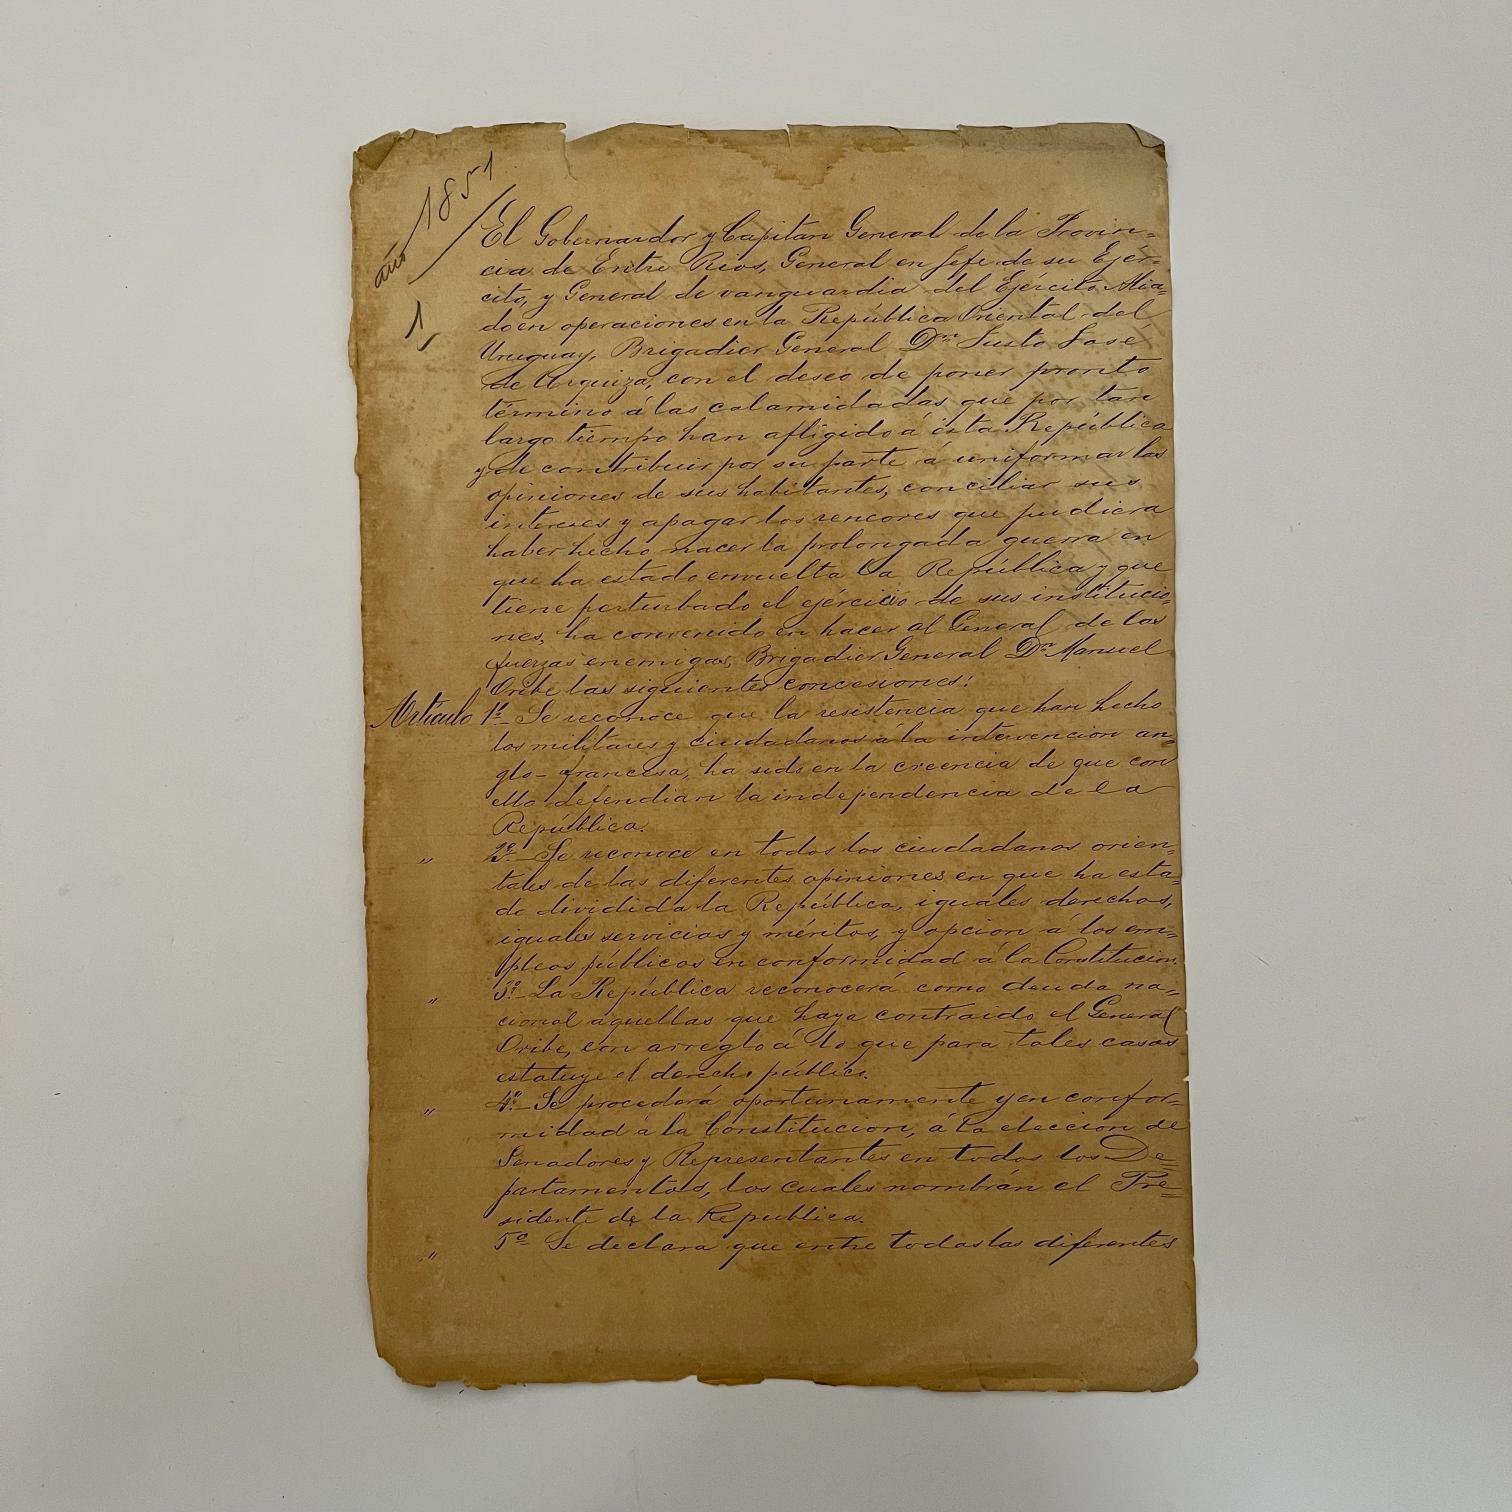 año 1851
1
El Gobernador y Capitan General de la Provin=
cia de Entre Rios, General en Jefe de su Ejér-
cito, y General de vanguardia del Ejército Alia=
do en operaciones en la República Oriental del
Uruguay, Brigadier General Dn Justo José
de Urquiza, con el deseo de poner pronto
término á las calamidades que por tan
largo tiempo han afligido á ésta República
y de contribuir por su parte á uniformar las
opiniones de sus habitantes, conciliar sus
intereses y apagar los rencores que pudiera
haber hecho nacer la prolongada guerra en
que ha estado envuelta la República y que
tiene perturbado el ejército de sus institucio=
nes, ha convenido en hacer al General de las
fuerzas enemigas, Brigadier General Dn Manuel
Oribe las siguientes concesiones:
Artículo 1º- Se reconoce que la resistencia que han hecho
los militares y ciudadanos á la intervencion an=
glo-francesa, ha sido en la creencia de que con
ello defendian la independencia de la
República.
" 2º- Se reconoce en todos los ciudadanos orien=
tales de las diferentes opiniones en que ha esta=
do dividida la República, iguales derechos,
iguales servicios y méritos, y opcion á los em=
pleos públicos en conformidad á la Constitucion.
" 3º- La República reconocerá como deuda na=
cional aquellas que haya contraido el General
Oribe, con arreglo á lo que para tales casos
estatuye el derecho público.
" 4º- Se procederá oportunamente y en confor=
midad á la Constitucion, á la eleccion de
Senadores y Representantes en todos los De=
partamentos, los cuales nombrán el Pre=
sidente de la Republica.
" 5º Se declara que entre todas las diferentes